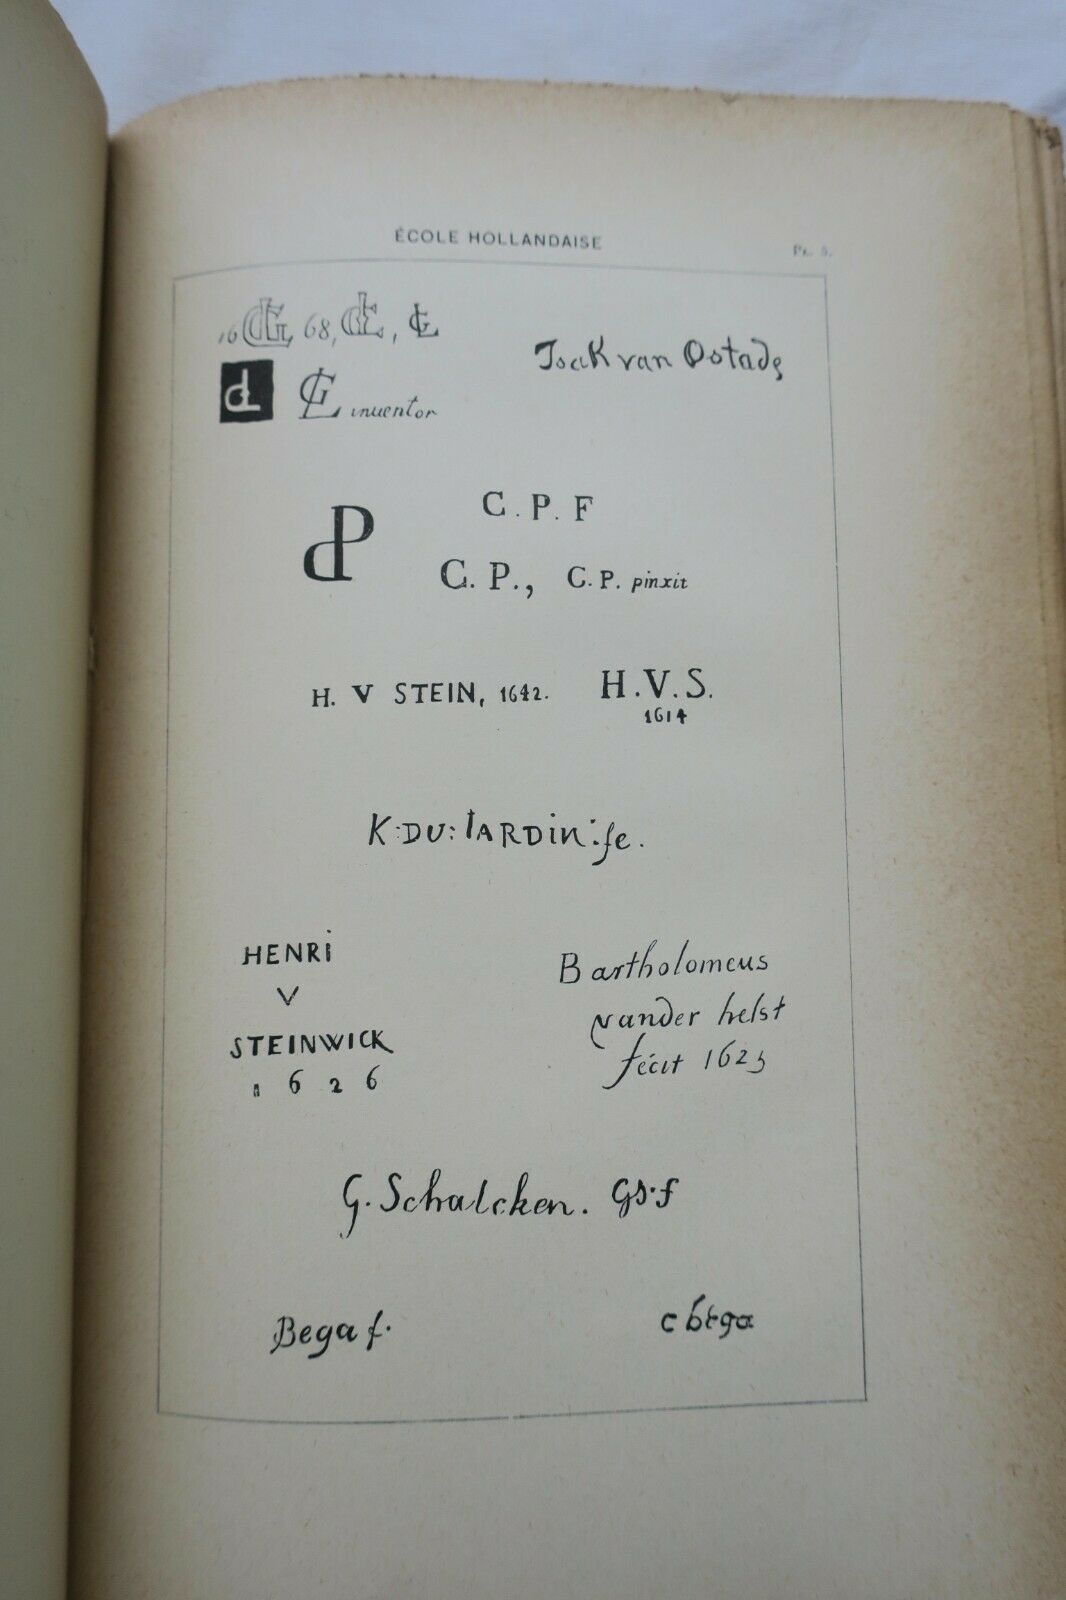 ÉCOLE HOLLANDAISE
PL. 5.
16 GL 68, GL, GL
Isack van Ostade
dL GL inventor
dP
C. P. F
C. P., C. P. pinxit
H. V STEIN, 1642. H. V. S.
1614
K: DU: IARDIN: fe.
HENRI
V
STEINWICK
1626
Bartholomeus
vander helst
fécit 1623
G. Schalcken. GS. f
Bega f. c bega